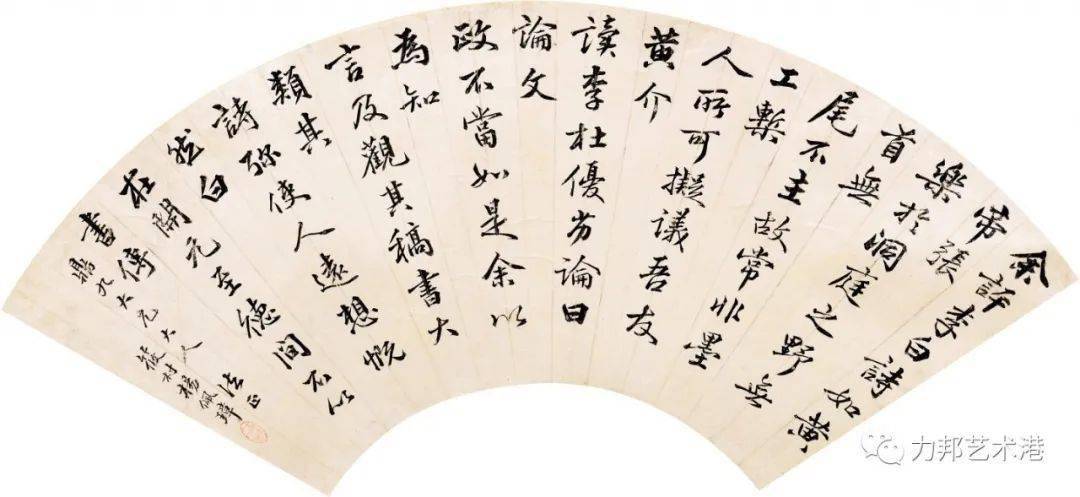 余評李白詩如黃
帝張
樂於洞庭之野無
首無
尾不主故常非墨
工槧
人所可擬議吾友
黃介
讀李杜優劣論曰
論文
政不當如是余以
為知
言及觀其稿書大
類其
詩弥使人遠想慨
然白
在開元至德間不以
書傳
鼎九大兄大人法正
筱村楊佩璋
力邦艺术港